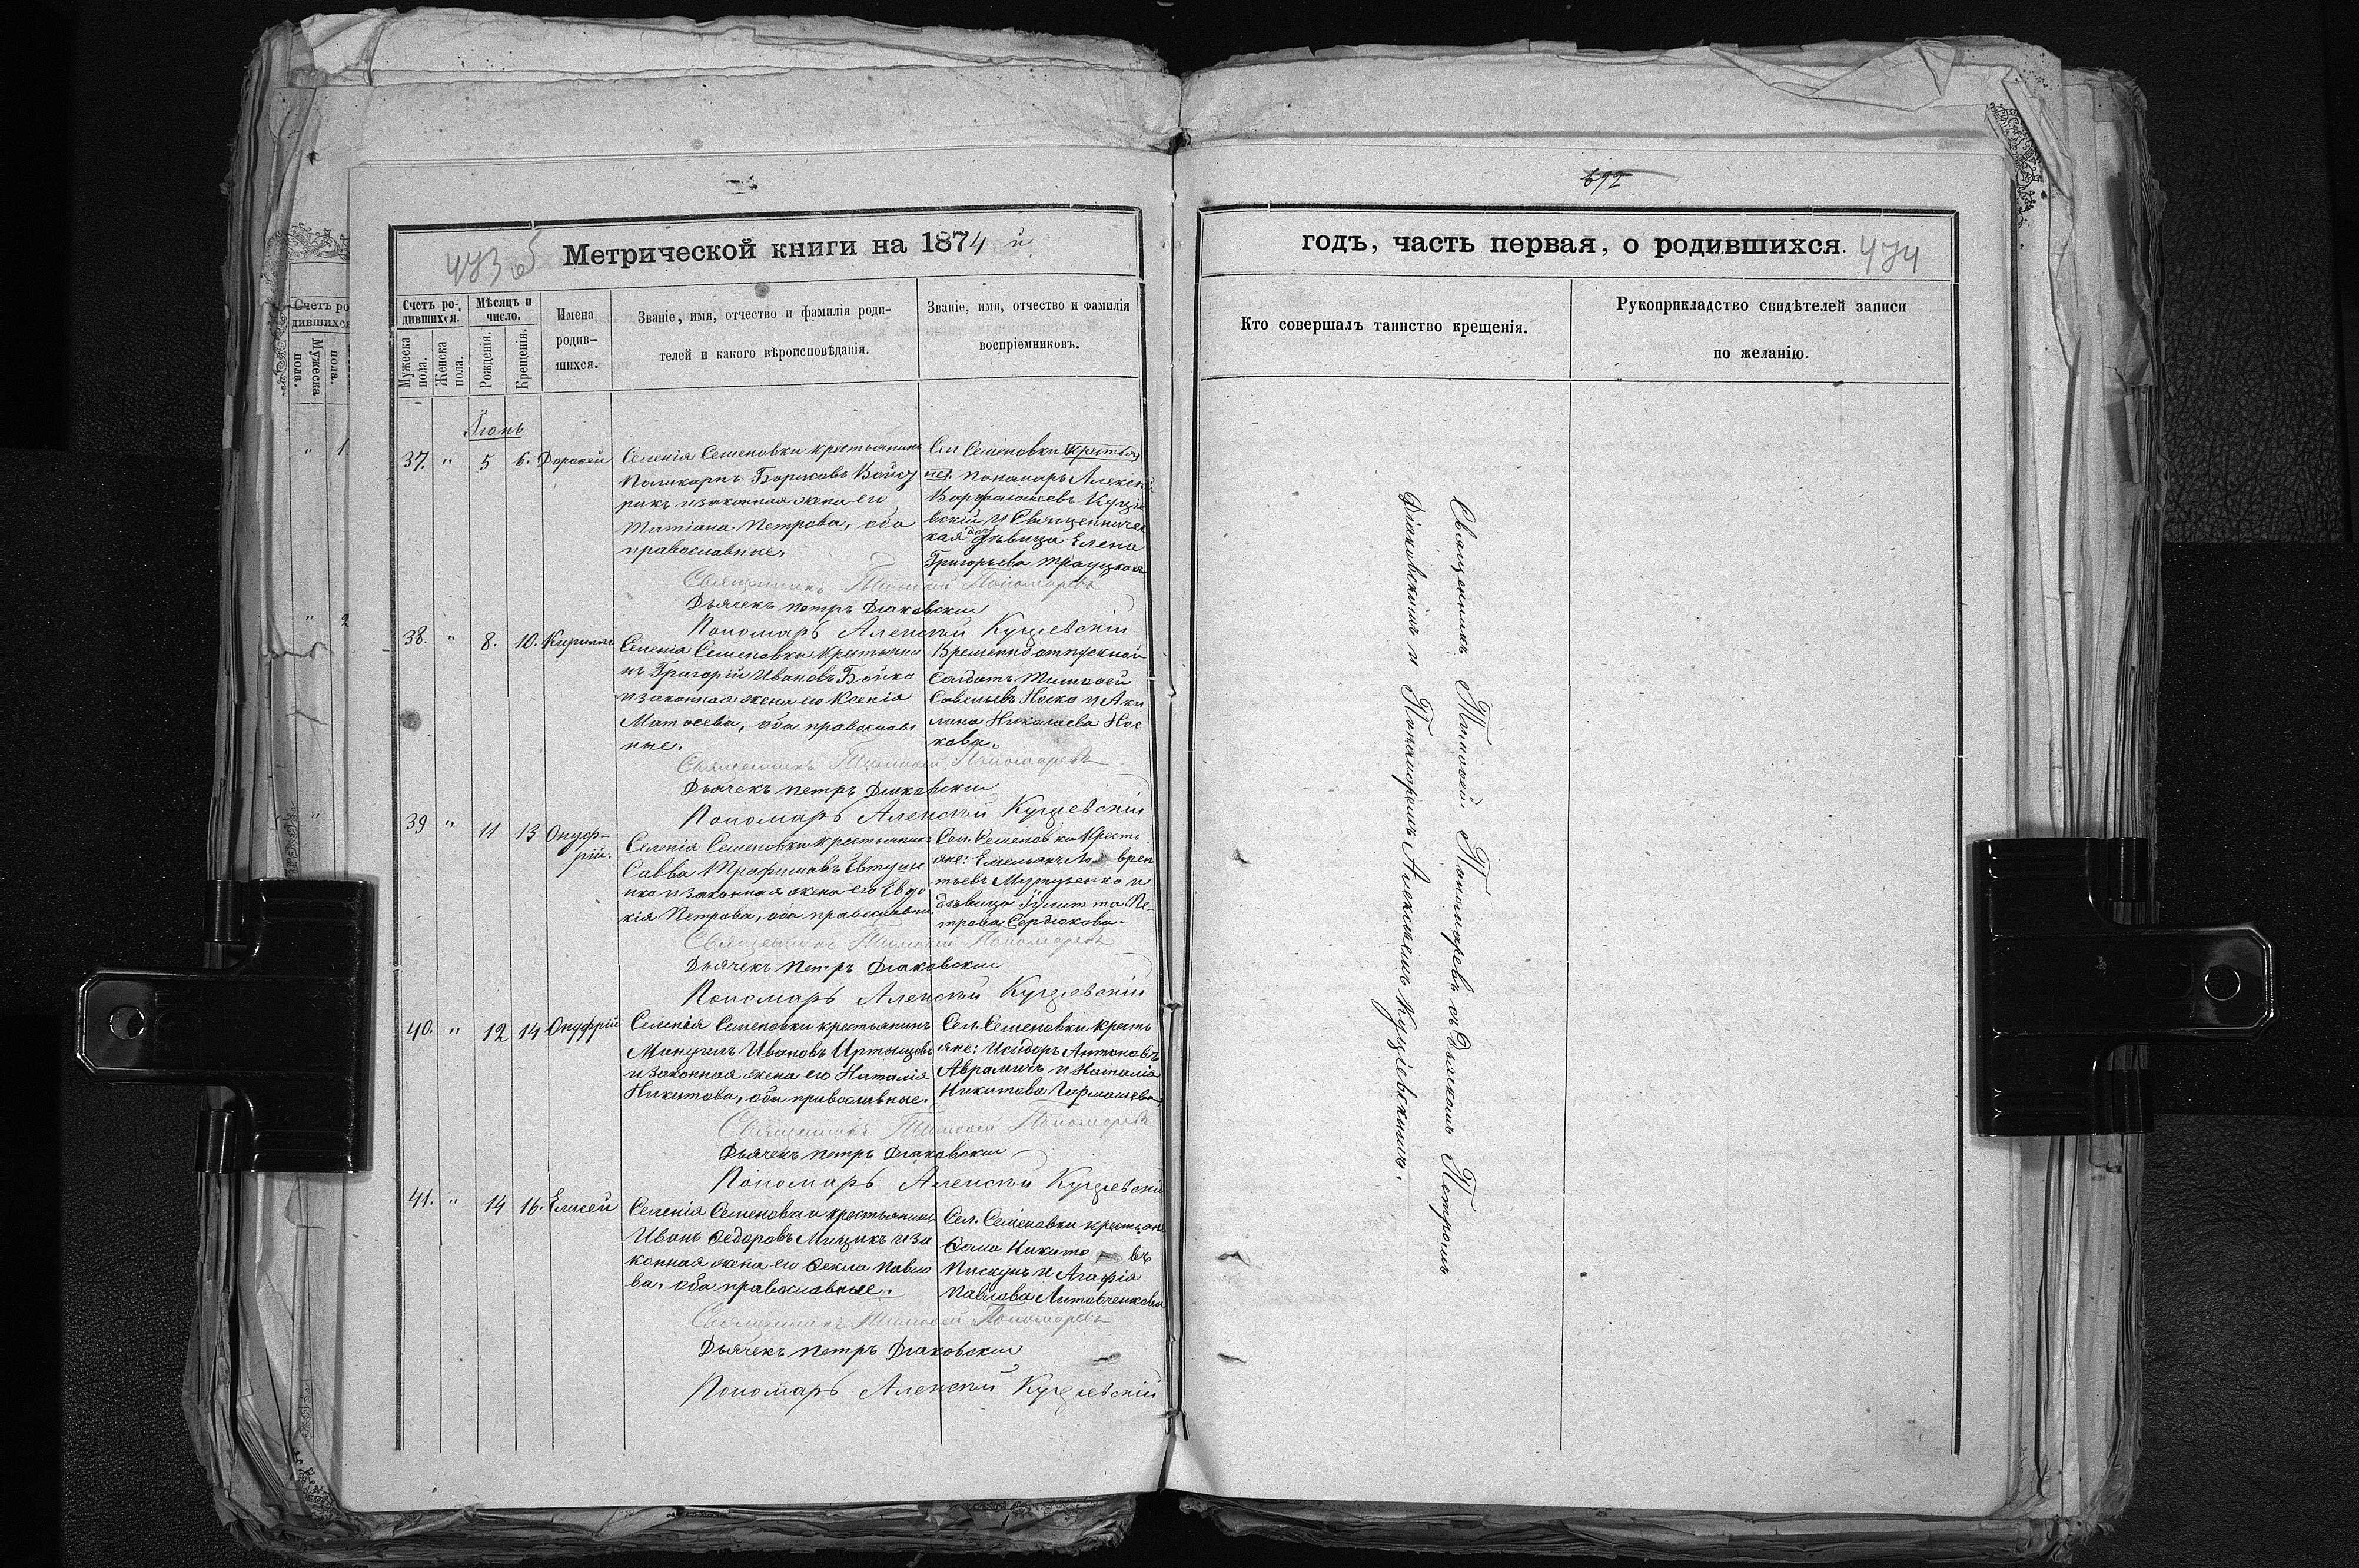 692
473 об
Метрической книги на 1874 й
годъ, часть первая, о родившихся.
474
Счетъ ро-
дившихся.
Мужеска
пола.
Женска
пола.
Мѣсяцъ и
число.
Рожденія.
Крещенія.
Имена
родив-
шихся.
Званіе, имя, отчество и фамилія роди-
телей и какого вѣроисповѣданія.
Званіе, имя, отчество и фамилія
воспріемниковъ.
Кто совершалъ таинство крещенія.
Рукоприкладство свидѣтелей записи
по желанію.
Счетъ ро
дившихся
Мужеска
пола.
пола.
" 1.
" 2
"
Іюнь
37. " 5 6. Дороѳей
Селенія Семеновки крестьянинъ
Поликарпъ Борисовъ
рикъ и законная жена его
Татіана Петрова, оба
православные.
Сел Семеновки крестья
не пономарь Алексѣй
Варфоломеевъ Кущіе
вскій и Священничес
кая дочь дѣвица Елена
Григорьева Трауцкая
Священникъ Тимоѳей Пономаревъ
Дьячекъ Петръ Діаковскій
Пономарь Алексѣй Кущіевскій
38. " 8. 10. Кириллъ
Селенія Семеновки Крестьяни
нъ Григорій Ивановъ Бойко
и законная жена его Ксенія
Матѳеева, оба православ
ные.
Временно отпускной
Солдатъ Тимоѳей
Савельевъ Носко и Аки
лина Николаева Нос
кова.
Священникъ Тимоѳей Пономаревъ
Дьячекъ Петръ Діаковскій
Пономарь Алексѣй Кущіевскій
39 " 11 13 Онуф-
рій.
Селенія Семеновки Крестьянинъ
Савва Трофимовъ Евтуше
нко и законная жена его Евдо
кія Петрова, оба православны
Сел. Семеновки Кресть
яне: Емельянъ Лаврен
тьевъ и
дѣвица Іулитта Пе-
трова Сердюкова.
Священникъ Тимоѳей Пономаревъ
Дьячекъ Петръ Діаковскій
Пономарь Алексѣй Кущіевскій
40. " 12 14 Онуфрій
Селенія Семеновки крестьянинъ
Мануилъ Ивановъ Иртыщевъ
и законная жена его Наталія
Никитова, оба православные.
Сел. Семеновки кресть
яне: Исидоръ Антоновъ
Аврамичъ и Наталія
Никитова
Священникъ Тимоѳей Пономаревъ
Дьячекъ Петръ Діаковскій
Пономарь Алексѣй Кущіевскій
41. " 14 16. Елисей
Селенія Семеновки крестьянинъ
Иванъ Ѳедоровъ Мищикъ и за
конная жена его Ѳекла Павло
ва, оба православные.
Сел. Семеновки крестьяне
Ѳома Никито въ
Пискунъ и Агафія
Павлова Литовченкова
Священникъ Тимоѳей Пономаревъ
Дьячекъ Петръ Діаковскій
Пономарь Алексѣй Кущіевскій
Священникъ Тимоѳей Пономаревъ съ Дьячкомъ Петромъ
Діаковскимъ и Пономаремъ Алексѣемъ Кущіевскимъ.